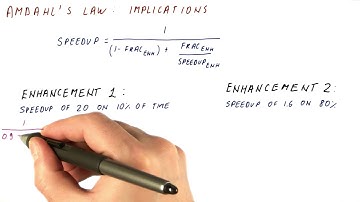 AMDAHL'S LAW: IMPLICATIONS
SPEEDUP = 1
(1 - FRAC ENH) + FRAC ENH
SPEEDUP ENH
ENHANCEMENT 1:
SPEEDUP OF 20 ON 10% OF TIME
1
0.9
ENHANCEMENT 2:
SPEEDUP OF 1.6 ON 80%